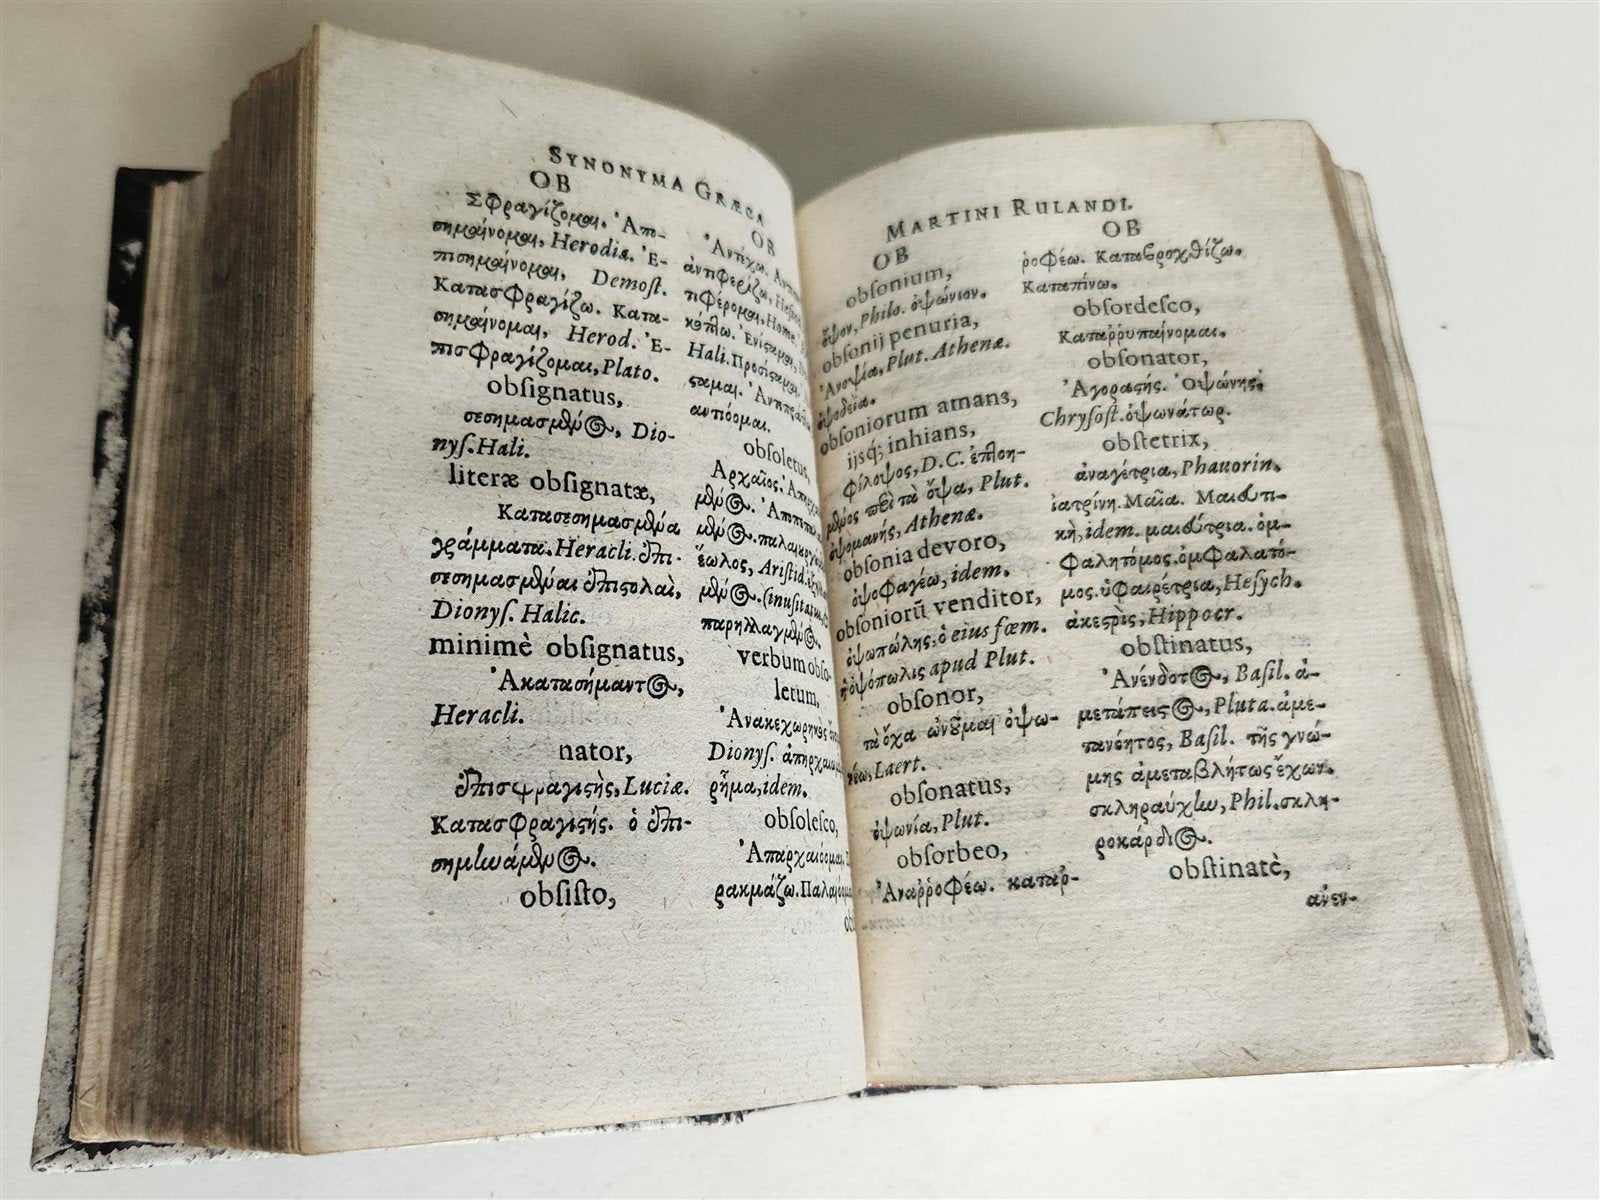 SYNONYMA GRÆCA
OB
Σφραγίζομαι. Ἀπο-
σημαίνομαι, Herodia. Ἐ-
πισημαίνομαι, Demoſt.
Κατασφραγίζω. Κατα-
σημαίνομαι, Herod. Ἐ-
πισφραγίζομαι, Plato.
obſignatus,
σεσημασμένος, Dio-
nyſ. Hali.
literæ obſignatæ,
Κατασεσημασμένα
γράμματα. Heracli. ἐπι-
σεσημασμέναι ἐπιςολαὶ,
Dionyſ. Halic.
minimè obſignatus,
Ἀκατασήμαντος,
Heracli.
nator,
ἐπισφραγιςὴς, Luciæ.
Κατασφραγιςής. ὁ ἐπι-
σημηνάμενος.
obſiſto,
OB
Ἀντέχω.
ἀντιφερίζω,
τιφέρομαι, Home
κόπτω. Ἐνίςαμαι,
Hali. Προσίςαμαι.
ςαμαι.
αντιόομαι.
obſoletus,
Ἀρχαῖος.
μένος.
μένος. παλαι
ἕωλος, Ariſtid.
μένος. (inuſitatus,
παρηλλαγμένος.
verbum obſo-
letum,
Ἀνακεχωρηκὸς
Dionyſ. ἀπηρχαιω
ρῆμα, idem.
obſoleſco,
Ἀπαρχαιόομαι.
ρακμάζω. Παλαιόομαι
MARTINI RULANDI.
OB
obſonium,
ὄψον, Philo. ὀψώνιον.
obſonij penuria,
Ἀνοψία, Plut. Athenæ.
ὀψοδεία.
obſoniorum amans,
ijsq; inhians,
φίλοψος, D.C. ἐπτοη-
μένος περὶ τὰ ὄψα, Plut.
ὀψομανής, Athenæ.
obſonia devoro,
ὀψοφαγέω, idem.
obſoniorū venditor,
ὀψωπώλης, ὁ eius fœm.
ἡ ὀψόπωλις apud Plut.
obſonor,
τὰ ὄχα ὠνοῦμαι ὀψω-
νέω, Laert.
obſonatus,
ὀψωνία, Plut.
obſorbeo,
Ἀναῤῥοφέω. καταῤ-
OB
ῥοφέω. Καταβροχθίζω.
Καταπίνω.
obſordeſco,
Καταῤῥυπαίνομαι.
obſonator,
Ἀγοραςής. Ὀψώνης.
Chryſoſt. ὀψωνάτωρ.
obſtetrix,
ἀναγέτρια, Phauorin.
ἰατρίνη. Μαῖα. Μαιευτι-
κὴ, idem. μαιεύτρια. ὀμ-
φαλητόμος. ὀμφαλατό-
μος. ὑφαιρέτρια, Heſych.
ἀκεςρὶς, Hippocr.
obſtinatus,
Ἀνένδοτος, Baſil. ἀ-
μετάπειςος, Pluta. ἀμε-
τανόητος, Baſil. τῆς γνώ-
μης ἀμεταβλήτως ἔχων.
σκληραύχην, Phil. σκλη-
ροκάρδιος.
obſtinatè,
ἀνεν-